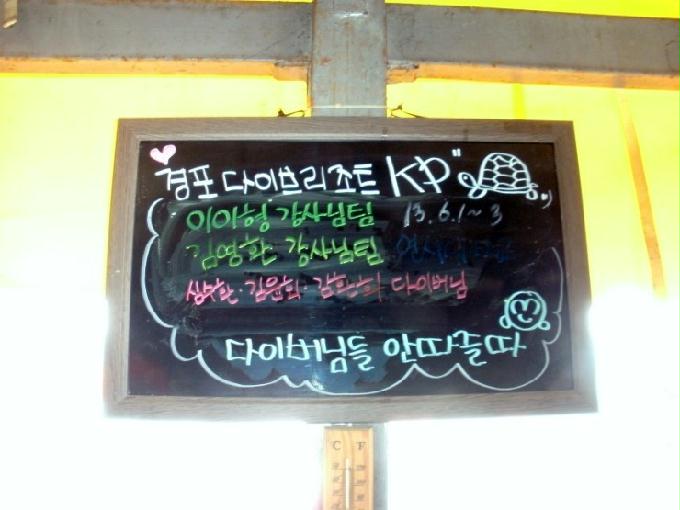 경포 다이브리조트 KD"
이아형 강사님팀 13.6.1~3
김영환 강사님팀
심수환·김윤희·김환희 다이버님
다이버님들 안따줄따
C F